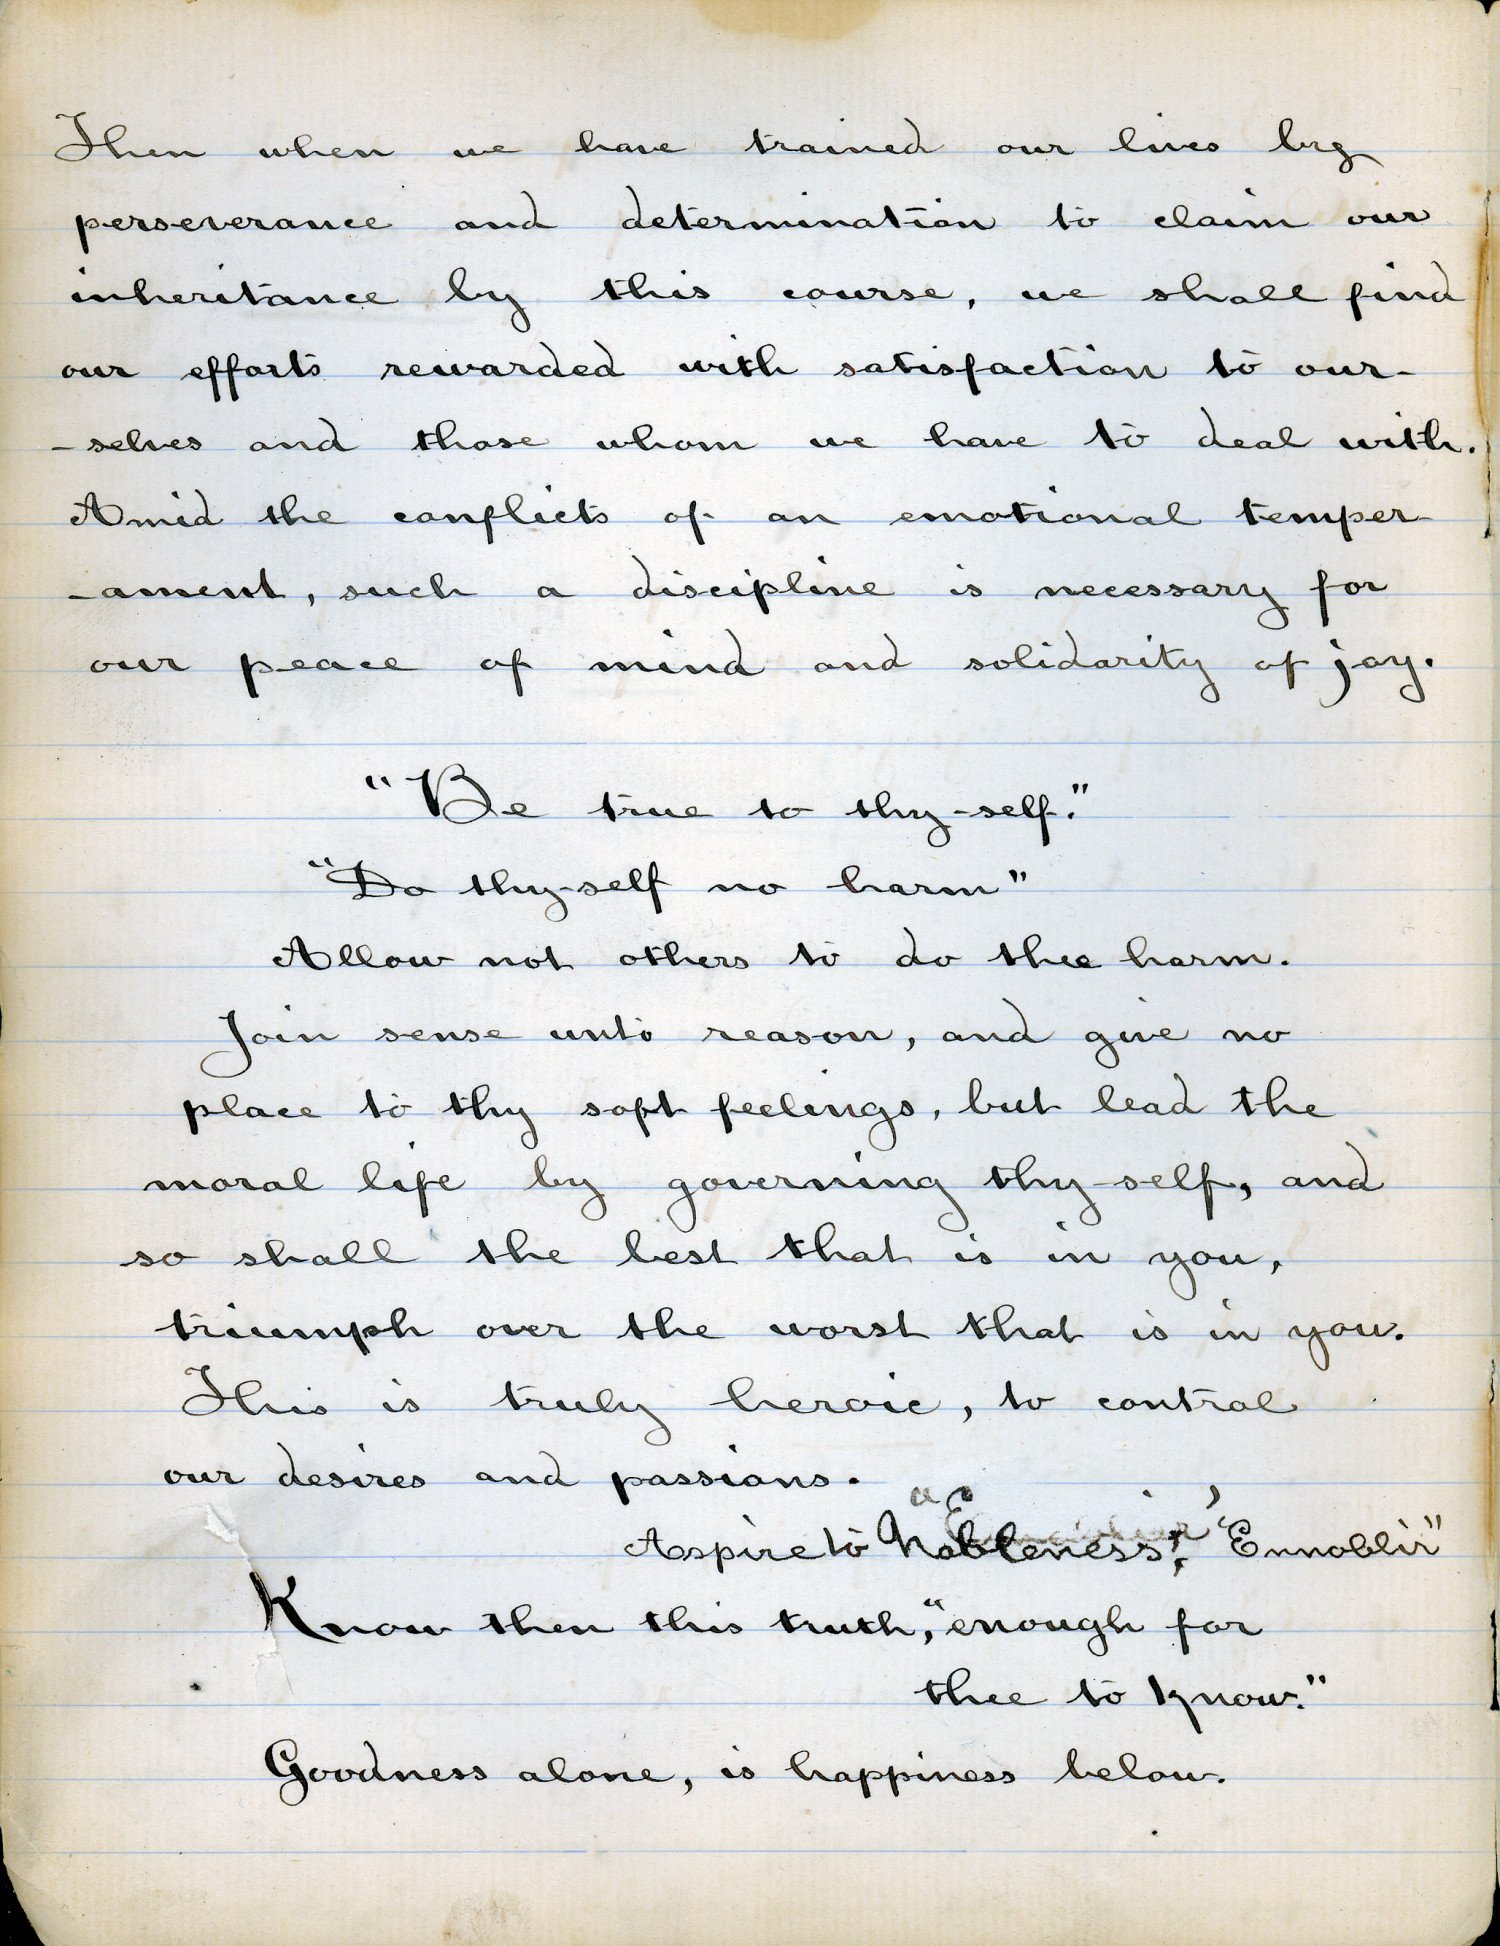 Then when we have trained our lives by
perseverance and determination to claim our
inheritance by this course, we shall find
our efforts rewarded with satisfaction to our-
-selves and those whom we have to deal with.
Amid the conflicts of an emotional temper-
-ament, such a discipline is necessary for
our peace of mind and solidarity of joy.
"Be true to thy-self."
"Do thy-self no harm"
Allow not others to do thee harm.
Join sense unto reason, and give no
place to thy soft feelings, but lead the
moral life by governing thy-self, and
so shall the best that is in you,
triumph over the worst that is in you.
This is truly heroic, to control
our desires and passions.
Aspire to Nobleness; "Ennoblir"
Know then this truth, "enough for
thee to know."
Goodness alone, is happiness below.